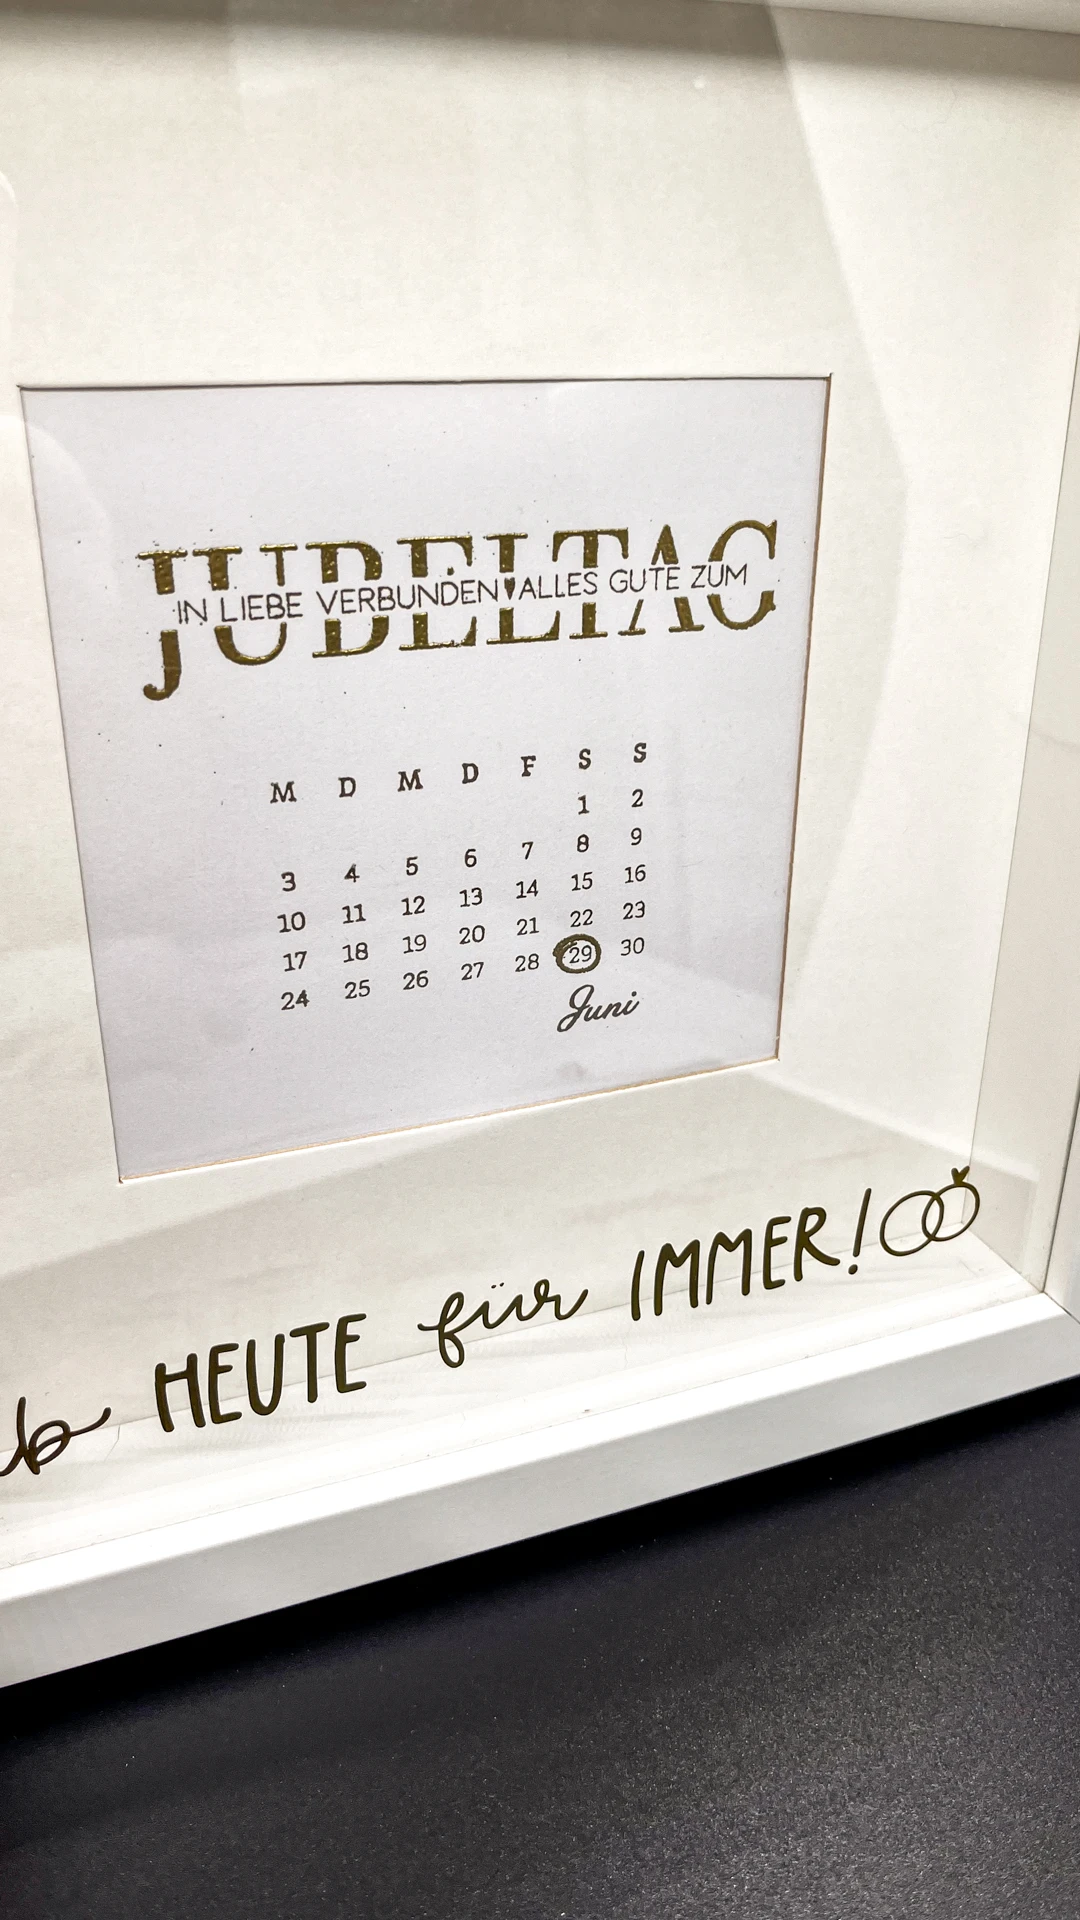 JUBELTAG
IN LIEBE VERBUNDEN♥ALLES GUTE ZUM
M D M D F S S
1 2
3 4 5 6 7 8 9
10 11 12 13 14 15 16
17 18 19 20 21 22 23
24 25 26 27 28 29 30
Juni
HEUTE für IMMER!